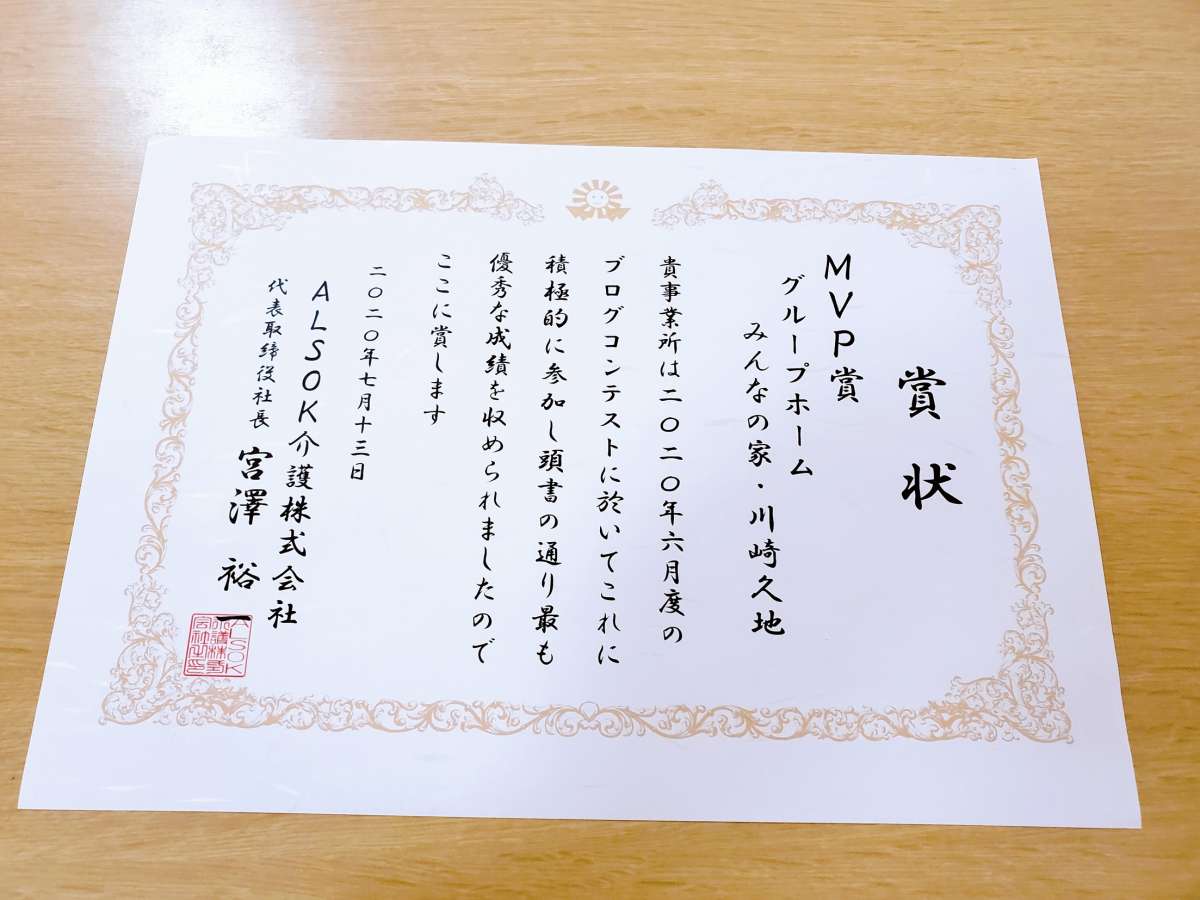 賞状
MVP賞
グループホーム
みんなの家・川崎久地
貴事業所は二〇二〇年六月度の
ブログコンテストに於いてこれに
積極的に参加し頭書の通り最も
優秀な成績を収められましたので
ここに賞します
二〇二〇年七月十三日
ALSOK介護株式会社
代表取締役社長 宮澤 裕一
ALSOK
介護株式
会社之印